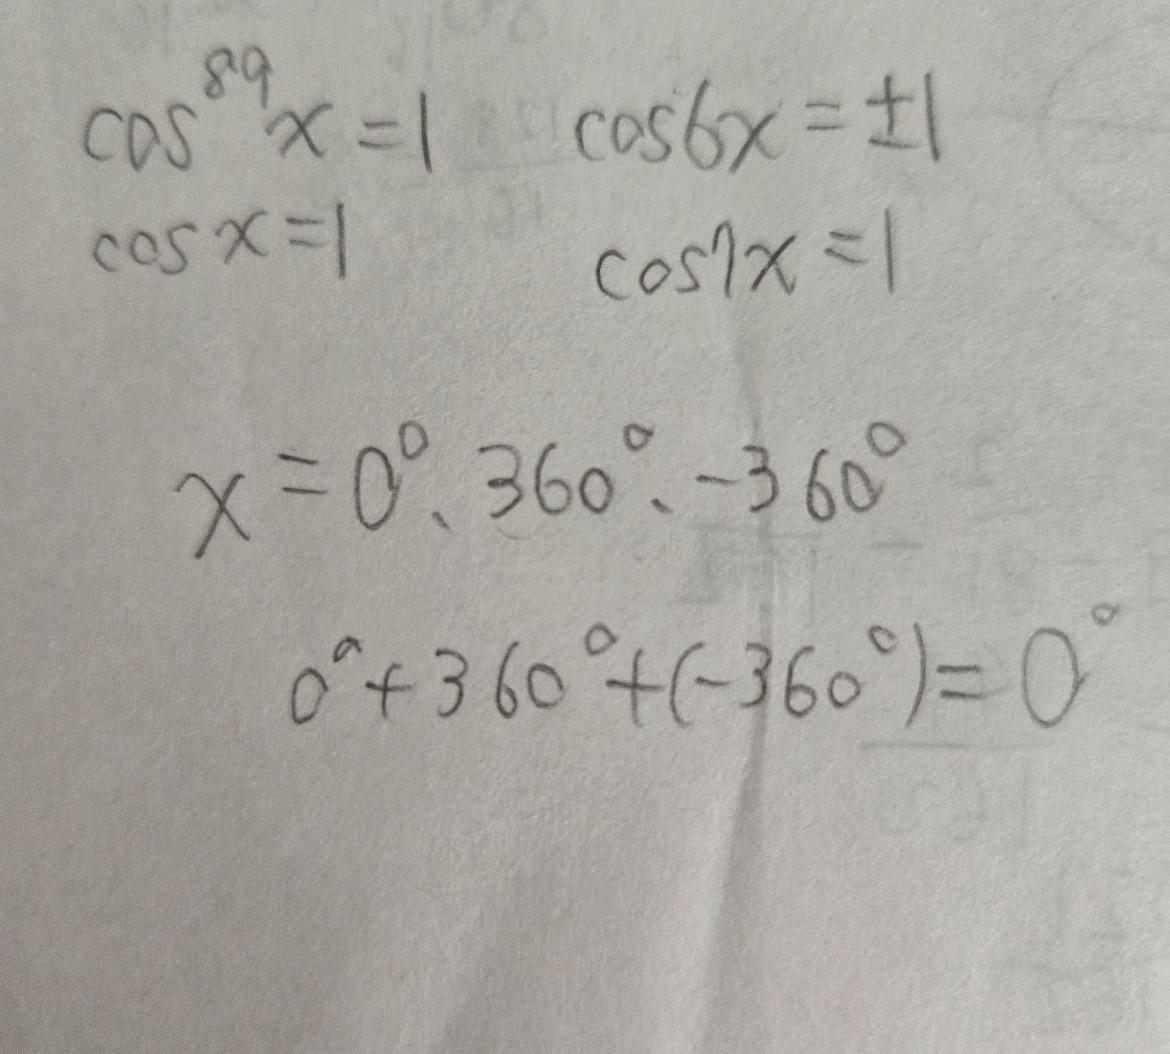 cos⁸⁹x=1 cos6x=±1
cosx=1 cos7x=1
x=0°、360°、-360°
0°+360°+(-360°)=0°